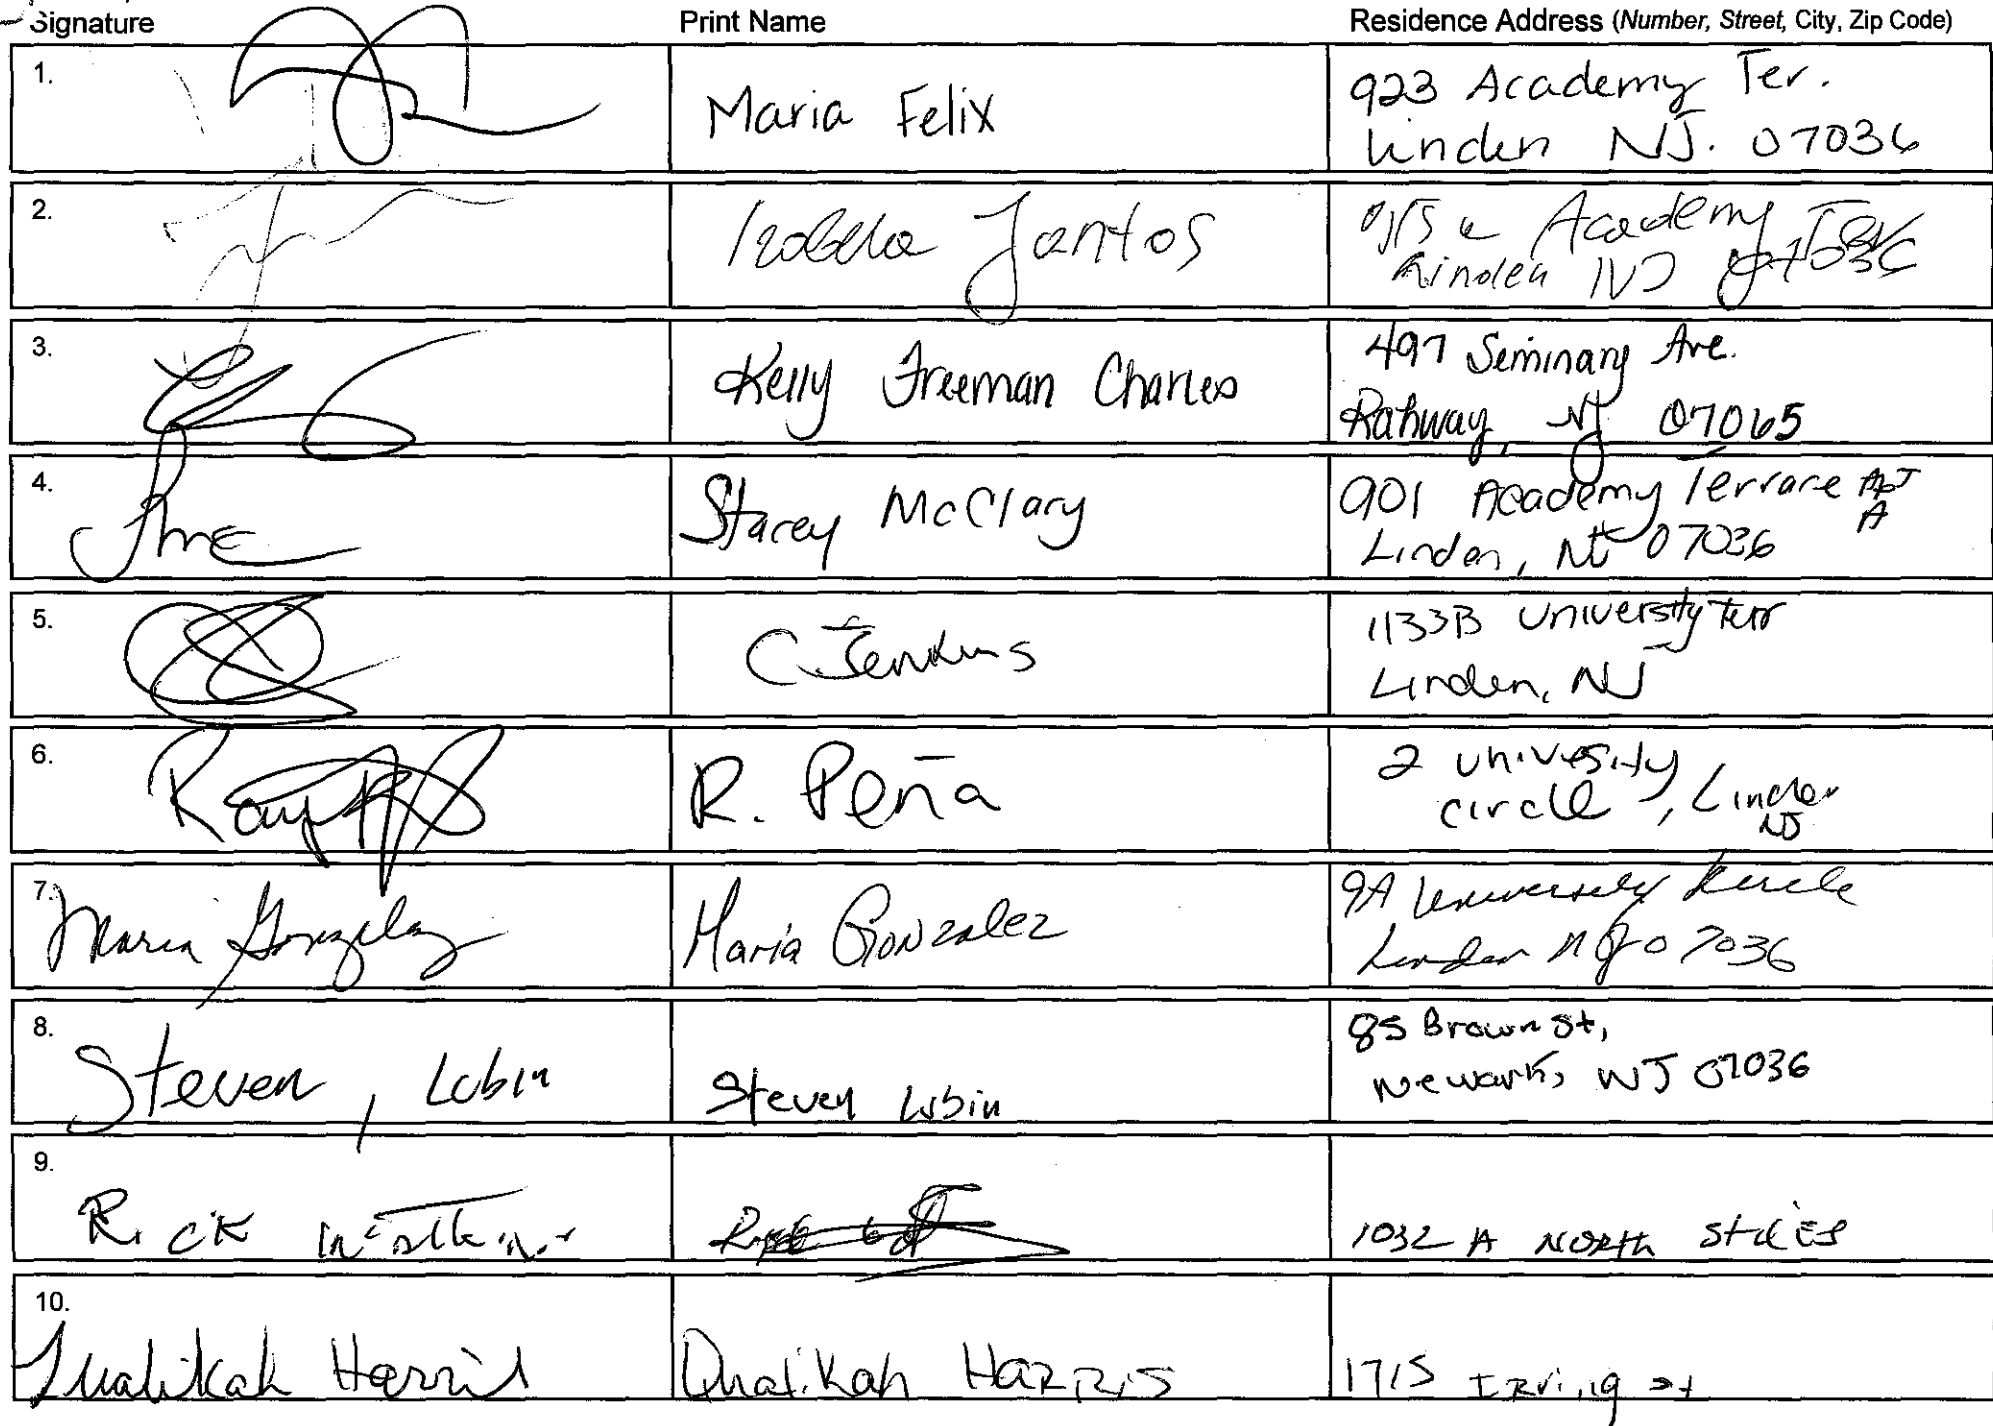 Signature Print Name Residence Address (Number, Street, City, Zip Code)
1. Maria Felix 923 Academy Ter.
Linden NJ. 07036
2. Academy Ter
Linden NJ 07036
3. Kelly Freeman Charles 497 Seminary Ave.
Rahway, NJ 07065
4. Stacey McClary 901 Academy Terrace Apt
A
Linden, NJ 07036
5. C Jenkins 1133B University Terr
Linden, NJ
6. Ray R. Peña 2 University
circle, Linden
NJ
7. Maria Gonzalez Maria Gonzalez 9A University
Linden NJ 07036
8. Steven, Lubin Steven Lubin 85 Brown St,
Newark, NJ 07036
9. Rick 1032 A North Stiles
10. Qualikah Harris Qualikah HARRIS 1715 Irving st